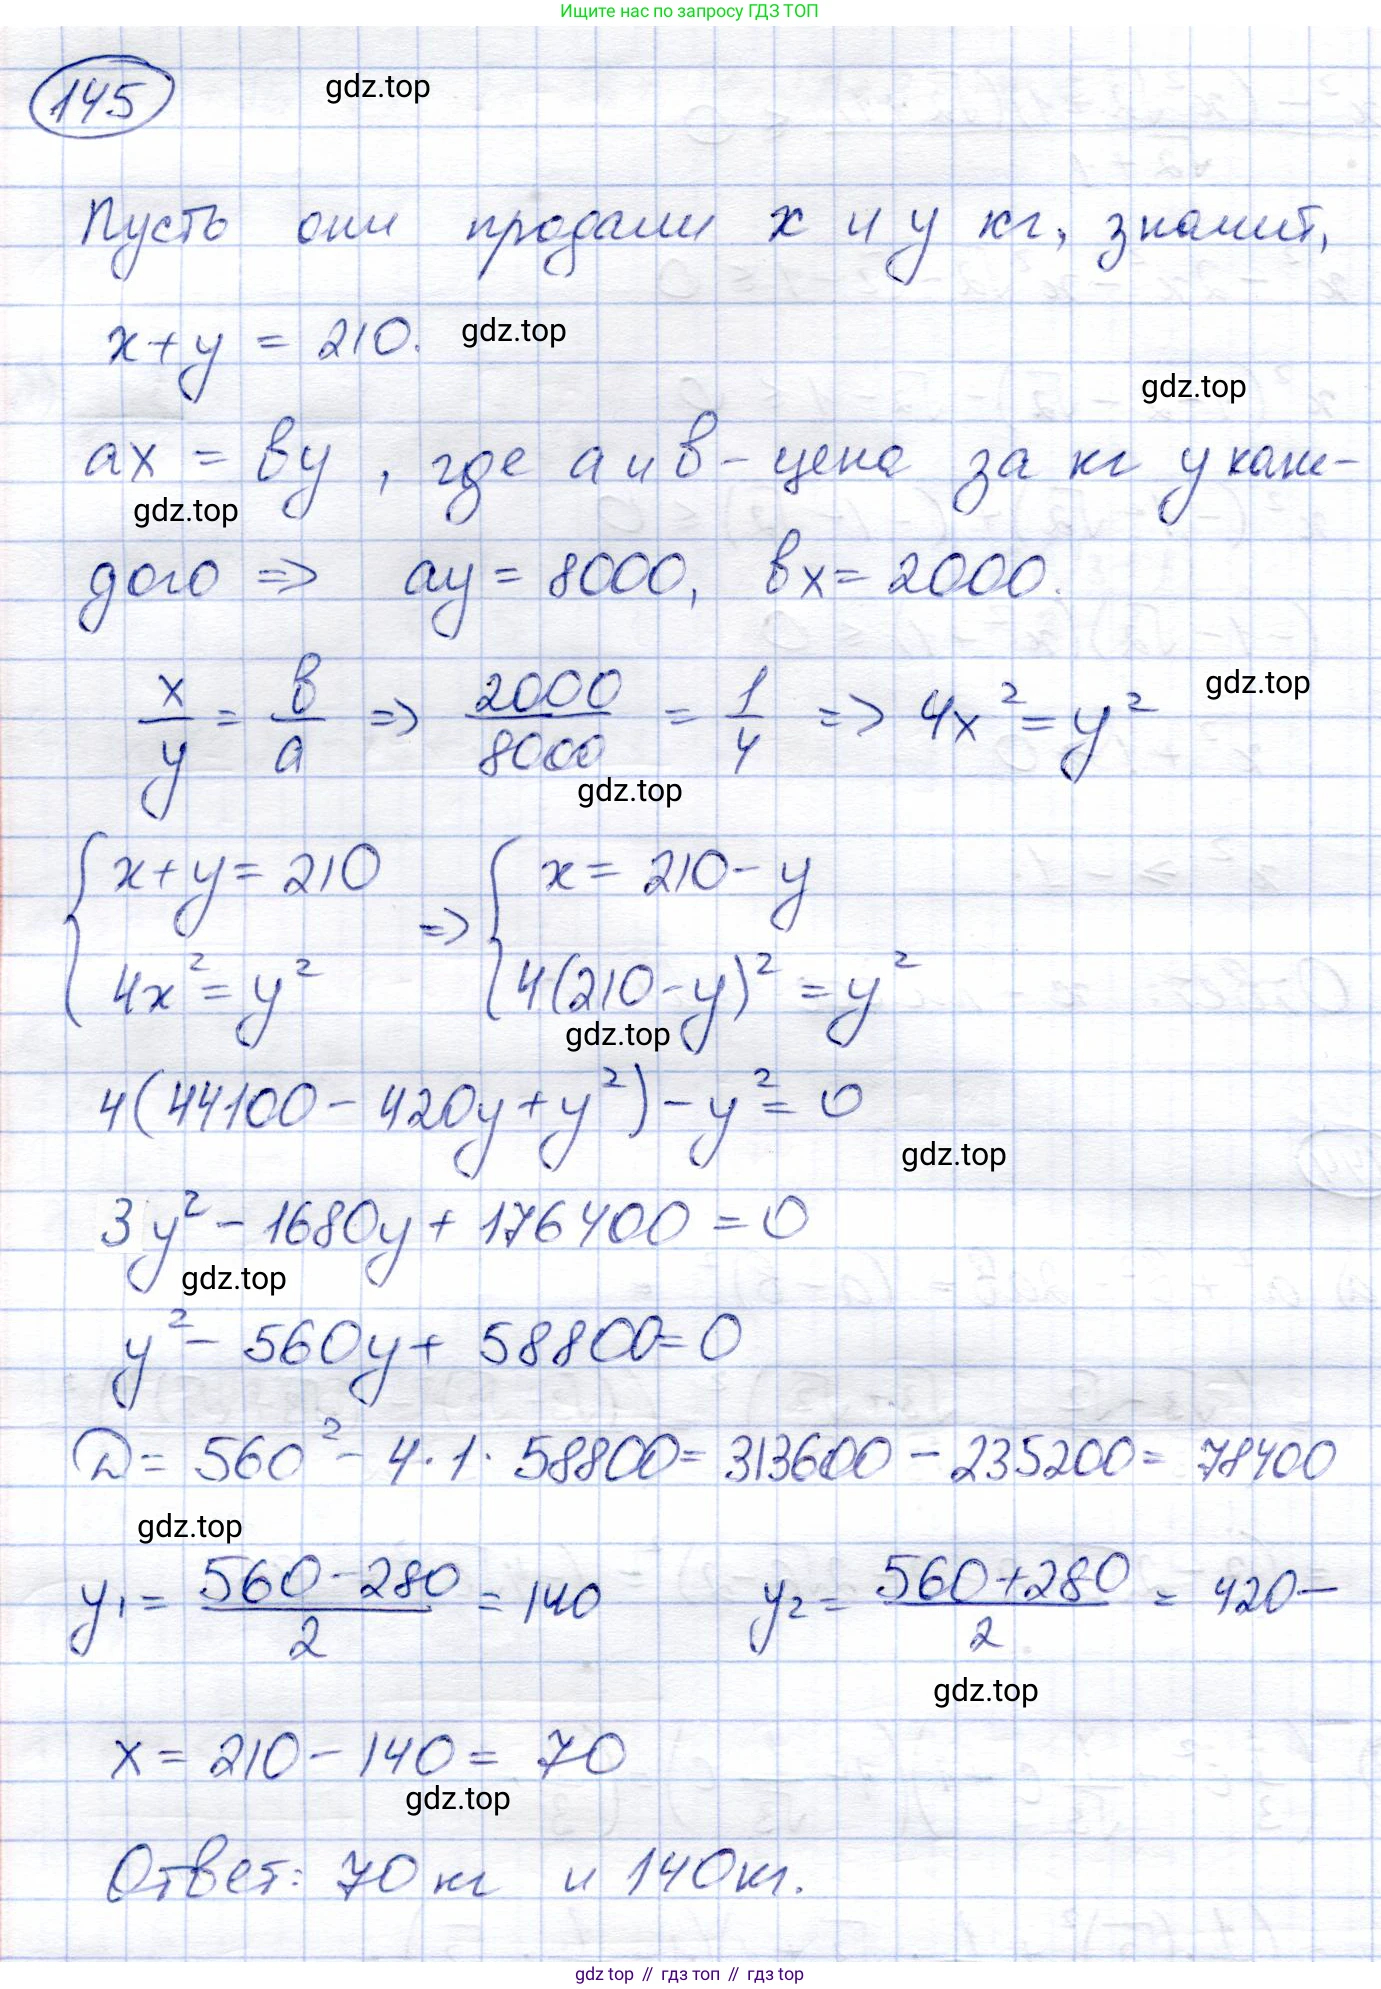 Ищите нас по запросу ГДЗ ТОП
145
gdz.top
Пусть они продали x и y кг, значит,
x+y = 210.
gdz.top
gdz.top
ax = вy, где a и в - цена за кг у каж-
gdz.top
дого => ay = 8000, вx = 2000.
x/y = в/a => 2000/8000 = 1/4 => 4x² = y²
gdz.top
gdz.top
{ x+y = 210 => { x = 210 - y
4x² = y² 4(210-y)² = y²
gdz.top
4(44100 - 420y + y²) - y² = 0
gdz.top
3y² - 1680y + 176400 = 0
gdz.top
y² - 560y + 58800 = 0
D = 560² - 4·1·58800 = 313600 - 235200 = 78400
gdz.top
y₁ = (560-280)/2 = 140 y₂ = (560+280)/2 = 420 -
gdz.top
x = 210 - 140 = 70
gdz.top
Ответ: 70 кг и 140 кг.
gdz top // гдз топ // гдз top